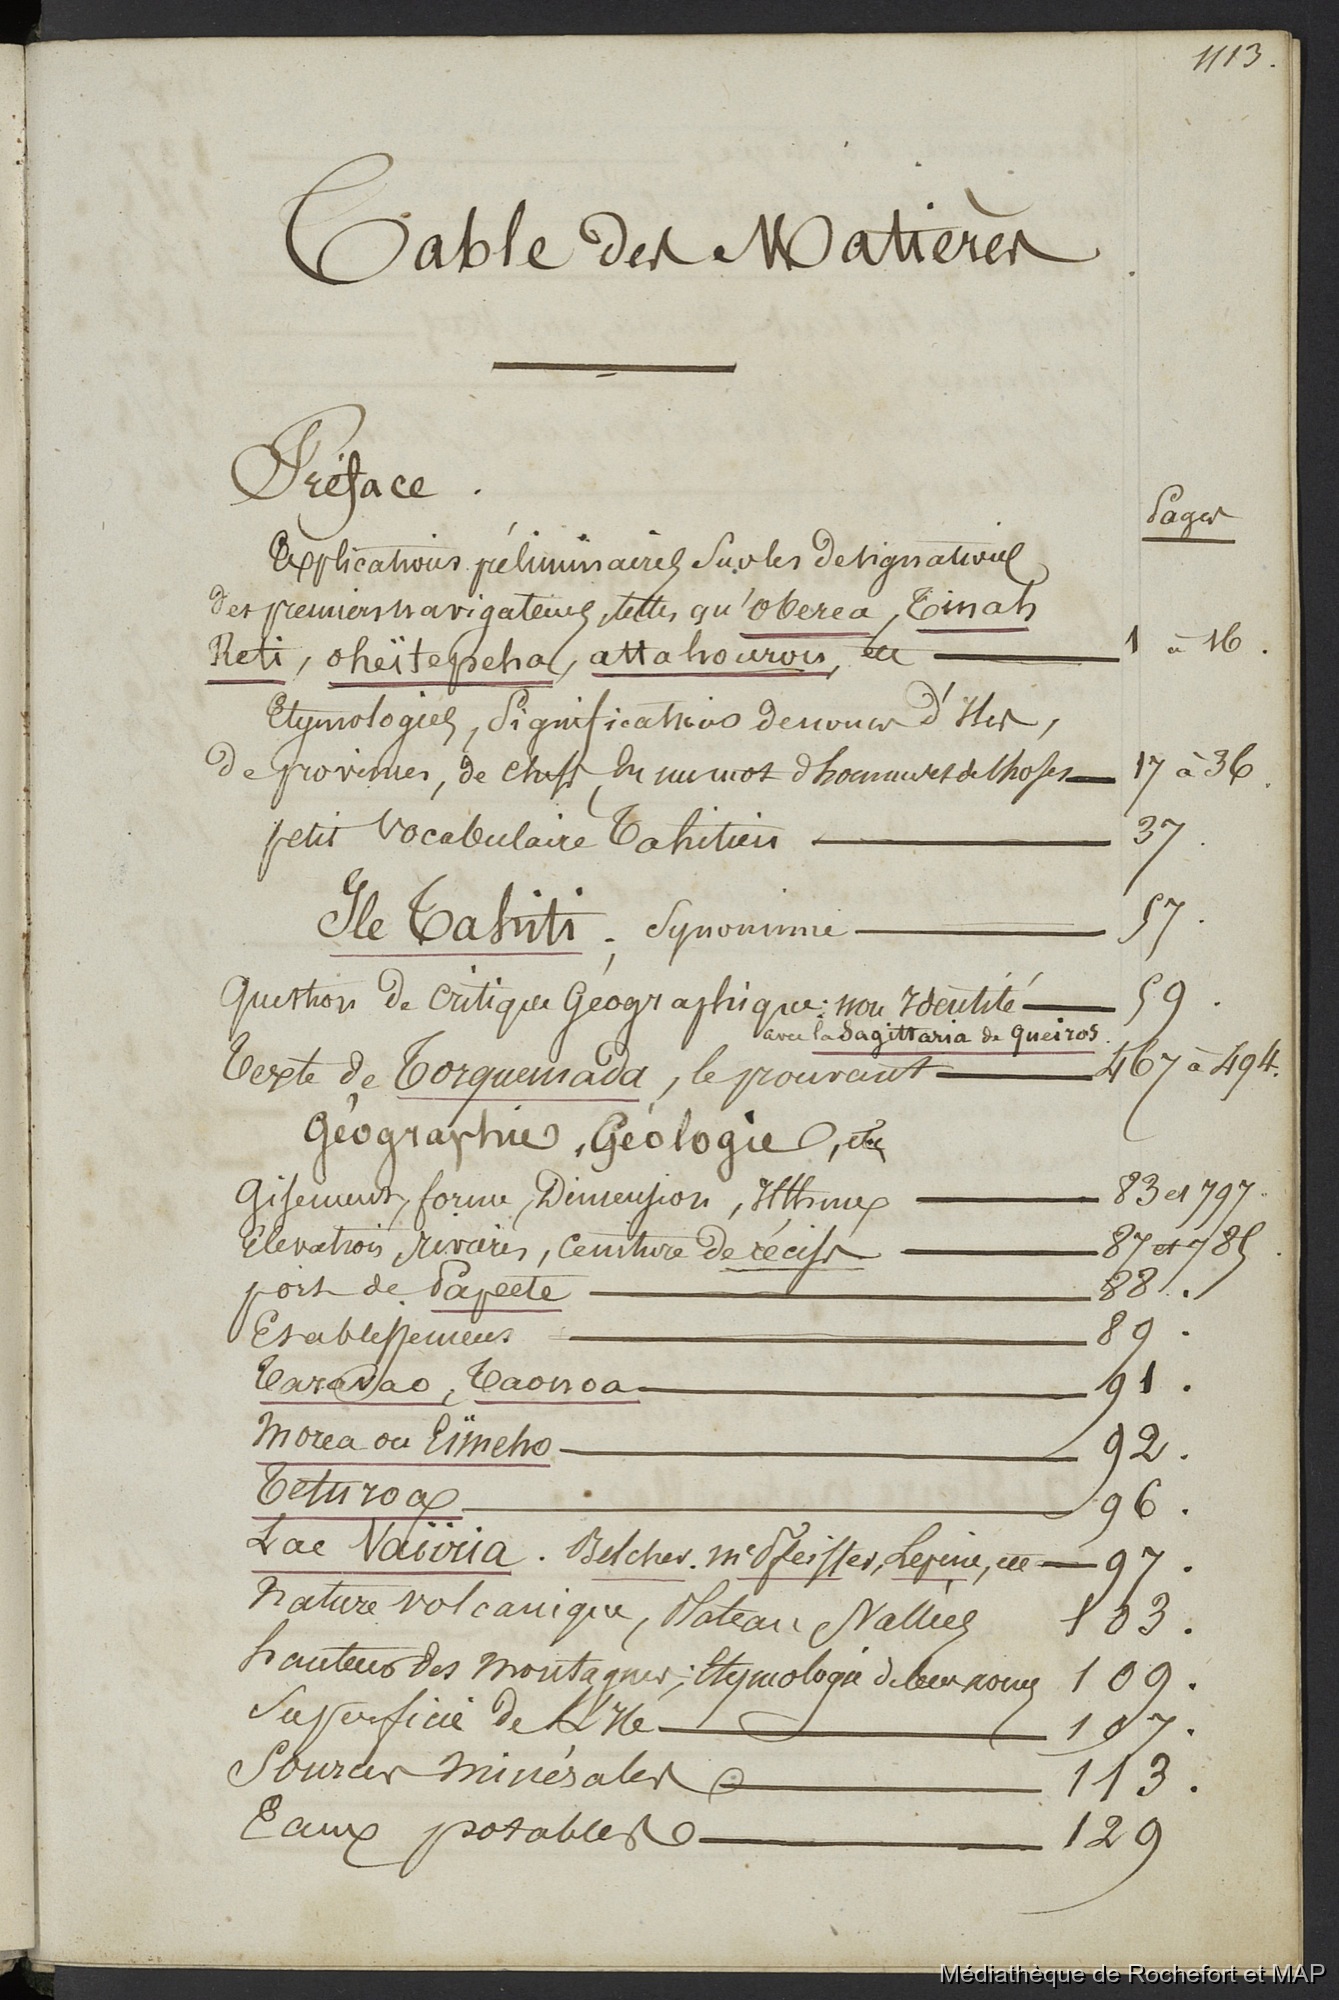 1113.
Table des Matières
Préface.
Pages
Explications péliminaires Sur les designations
des premiers navigateurs, telles qu'oberea, Tinah
Reti, oheïtepeha, attahourou, etc 1 à 16.
Etymologies, Significations de noms d'Iles,
de provinces, de chefs, En un mot d'hommes et de choses 17 à 36.
petit Vocabulaire Tahitien 37.
Ile Tahiti; Synonimie 57.
Question de Critique Géographique: non Identité 59.
avec la Sagittaria de Queiros.
Texte de Torquemada, le prouvant 467 à 494.
Géographie, Géologie, etc
Gisement, forme, Dimension, Isthme 83 et 797.
Elévation, rivières, Ceinture de récifs 87 et 785.
port de Papeete 88.
Etablissemens 89.
Taravao, Taonoa 91.
Morea ou Eïmeho 92.
Teturoa 96.
Lac Vaïiria. Belcher. Me Pfeiffer, Lepine, etc 97.
Nature volcanique, Plateau, Vallées 103.
hauteur des Montagnes; Etymologie de leur noms 109.
Superficie de L'Ile 107.
Sources Minérales 113.
Eaux potables 129
Médiathèque de Rochefort et MAP